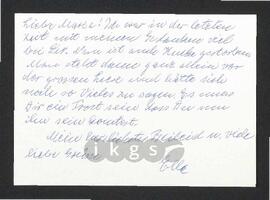 Liebe Maria! Ich war in der letzten
Zeit mit meinen Gedanken viel
bei Dir. Nun ist auch
Man steht dann ganz allein vor
der grossen Leere und hätte sich
noch so Vieles zu sagen. Es muss
Dir ein Trost sein dass Du nun
Mein herzlichstes Beileid u. viele
liebe Grüße
jkgs